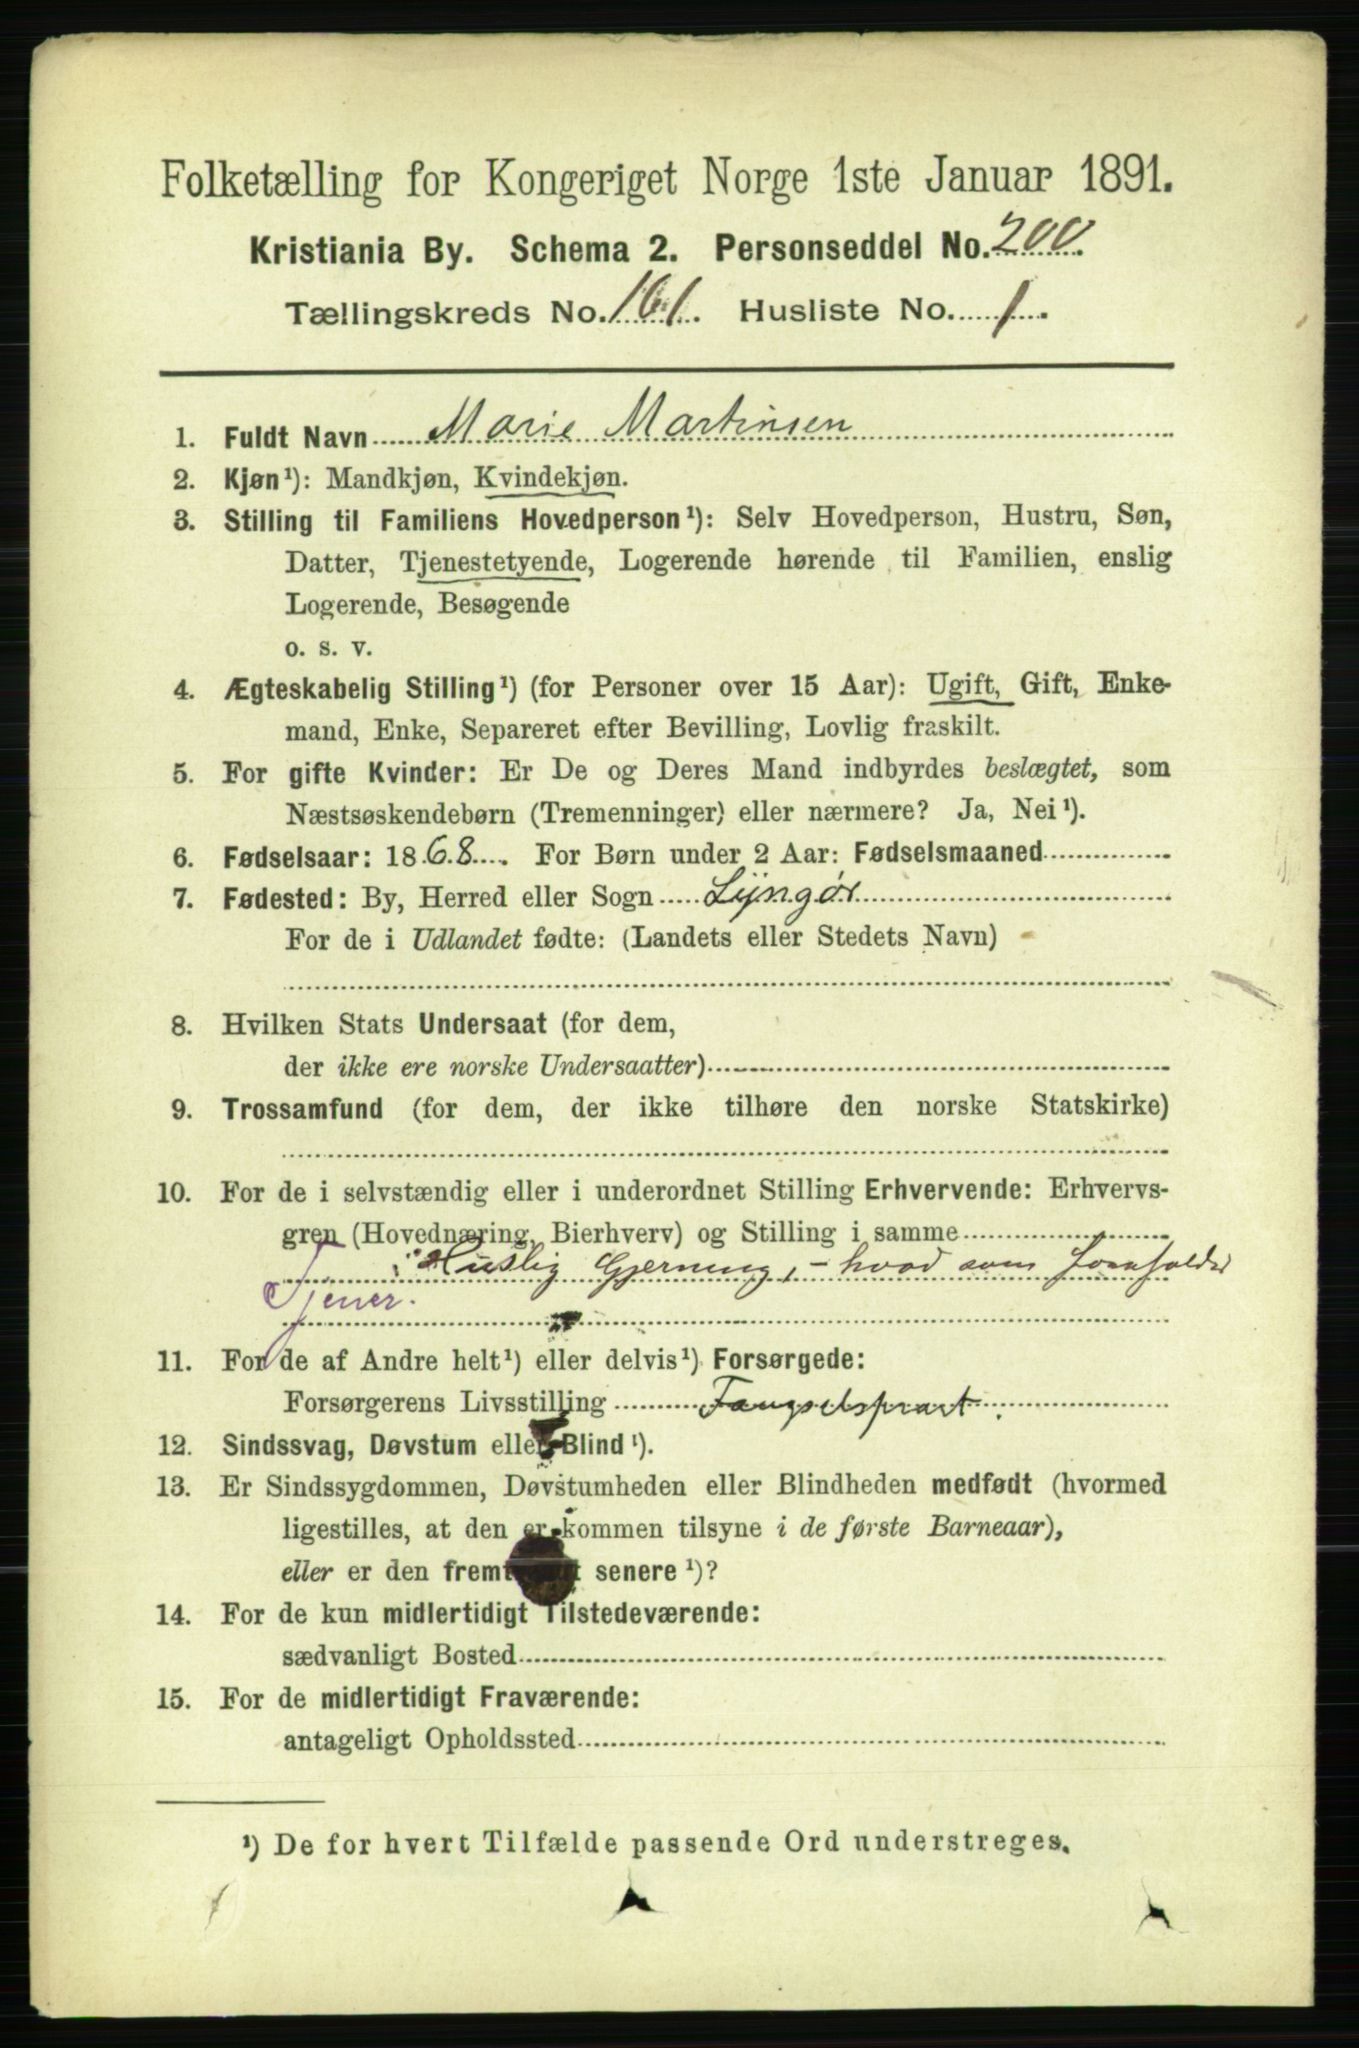 Folketælling for Kongeriget Norge 1ste Januar 1891.
Kristiania By. Schema 2. Personseddel No. 200.
Tællingskreds No. 161. Husliste No. 1.
1. Fuldt Navn Marie Martinsen
2. Kjøn¹): Mandkjøn, Kvindekjøn.
3. Stilling til Familiens Hovedperson¹): Selv Hovedperson, Hustru, Søn,
Datter, Tjenestetyende, Logerende hørende til Familien, enslig
Logerende, Besøgende
o. s. v.
4. Ægteskabelig Stilling¹) (for Personer over 15 Aar): Ugift, Gift, Enke-
mand, Enke, Separeret efter Bevilling, Lovlig fraskilt.
5. For gifte Kvinder: Er De og Deres Mand indbyrdes beslægtet, som
Næstsøskendebørn (Tremenninger) eller nærmere? Ja, Nei¹).
6. Fødselsaar: 1868. For Børn under 2 Aar: Fødselsmaaned
7. Fødested: By, Herred eller Sogn Lyngør
For de i Udlandet fødte: (Landets eller Stedets Navn)
8. Hvilken Stats Undersaat (for dem,
der ikke ere norske Undersaatter)
9. Trossamfund (for dem, der ikke tilhøre den norske Statskirke)
10. For de i selvstændig eller i underordnet Stilling Erhvervende: Erhvervs-
gren (Hovednæring, Bierhverv) og Stilling i samme
i Huslig Gjerning, - hvad som forefalder
Tjener.
11. For de af Andre helt¹) eller delvis¹) Forsørgede:
Forsørgerens Livsstilling
12. Sindssvag, Døvstum eller Blind¹).
13. Er Sindssygdommen, Døvstumheden eller Blindheden medfødt (hvormed
ligestilles, at den er kommen tilsyne i de første Barneaar),
eller er den senere¹)?
14. For de kun midlertidigt Tilstedeværende:
sædvanligt Bosted
15. For de midlertidigt Fraværende:
antageligt Opholdssted
¹) De for hvert Tilfælde passende Ord understreges.